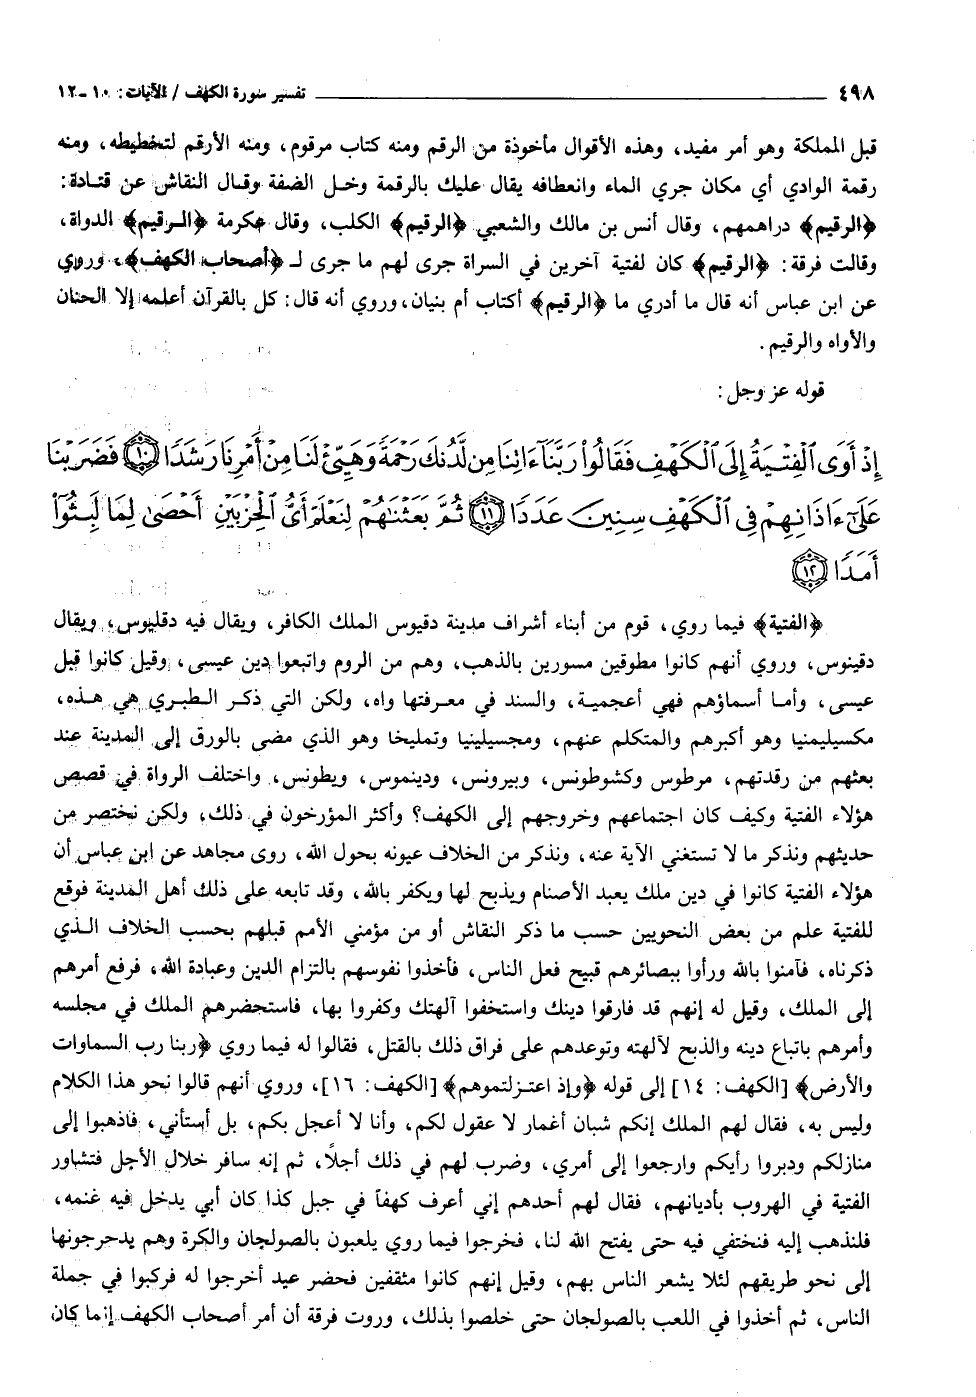 ٤٩٨ ــــــــــــــــــــ تفسير سورة الكهف / الآيات: ١٠ - ١٢
قبل المملكة وهو أمر مفيد، وهذه الأقوال مأخوذة من الرقم ومنه كتاب مرقوم، ومنه الأرقم لتخطيطه، ومنه
رقمة الوادي أي مكان جري الماء وانعطافه يقال عليك بالرقمة وخل الضفة وقال النقاش عن قتادة:
﴿الرقيم﴾ دراهمهم، وقال أنس بن مالك والشعبي ﴿الرقيم﴾ الكلب، وقال عكرمة ﴿الرقيم﴾ الدواة،
وقالت فرقة: ﴿الرقيم﴾ كان لفتية آخرين في السراة جرى لهم ما جرى لـ ﴿أصحاب الكهف﴾، وروي
عن ابن عباس أنه قال ما أدري ما ﴿الرقيم﴾ أكتاب أم بنيان، وروي أنه قال: كل بالقرآن أعلمه إلا الحنان
والأواه والرقيم.
قوله عز وجل:
إِذْ أَوَى ٱلْفِتْيَةُ إِلَى ٱلْكَهْفِ فَقَالُوا۟ رَبَّنَآ ءَاتِنَا مِن لَّدُنكَ رَحْمَةً وَهَيِّئْ لَنَا مِنْ أَمْرِنَا رَشَدًا ﴿١٠﴾ فَضَرَبْنَا
عَلَىٰٓ ءَاذَانِهِمْ فِى ٱلْكَهْفِ سِنِينَ عَدَدًا ﴿١١﴾ ثُمَّ بَعَثْنَٰهُمْ لِنَعْلَمَ أَىُّ ٱلْحِزْبَيْنِ أَحْصَىٰ لِمَا لَبِثُوٓا۟
أَمَدًا ﴿١٢﴾
﴿الفتية﴾ فيما روي، قوم من أبناء أشراف مدينة دقيوس الملك الكافر، ويقال فيه دقليوس، ويقال
دقينوس، وروي أنهم كانوا مطوقين مسورين بالذهب، وهم من الروم واتبعوا دين عيسى، وقيل كانوا قبل
عيسى، وأما أسماؤهم فهي أعجمية، والسند في معرفتها واه، ولكن التي ذكر الطبري هي هذه،
مكسيليمنيا وهو أكبرهم والمتكلم عنهم، ومجسيلينيا وتمليخا وهو الذي مضى بالورق إلى المدينة عند
بعثهم من رقدتهم، مرطوس وكشوطونس، وبيرونس، ودينموس، ويطونس، واختلف الرواة في قصص
هؤلاء الفتية وكيف كان اجتماعهم وخروجهم إلى الكهف؟ وأكثر المؤرخون في ذلك، ولكن نختصر من
حديثهم ونذكر ما لا تستغني الآية عنه، ونذكر من الخلاف عيونه بحول الله، روى مجاهد عن ابن عباس أن
هؤلاء الفتية كانوا في دين ملك يعبد الأصنام ويذبح لها ويكفر بالله، وقد تابعه على ذلك أهل المدينة فوقع
للفتية علم من بعض النحويين حسب ما ذكر النقاش أو من مؤمني الأمم قبلهم بحسب الخلاف الذي
ذكرناه، فآمنوا بالله ورأوا ببصائرهم قبيح فعل الناس، فأخذوا نفوسهم بالتزام الدين وعبادة الله، فرفع أمرهم
إلى الملك، وقيل له إنهم قد فارقوا دينك واستخفوا آلهتك وكفروا بها، فاستحضرهم الملك في مجلسه
وأمرهم باتباع دينه والذبح لآلهته وتوعدهم على فراق ذلك بالقتل، فقالوا له فيما روي ﴿ربنا رب السماوات
والأرض﴾ [الكهف: ١٤] إلى قوله ﴿وإذ اعتزلتموهم﴾ [الكهف: ١٦]، وروي أنهم قالوا نحو هذا الكلام
وليس به، فقال لهم الملك إنكم شبان أغمار لا عقول لكم، وأنا لا أعجل بكم، بل أستأني، فاذهبوا إلى
منازلكم ودبروا رأيكم وارجعوا إلى أمري، وضرب لهم في ذلك أجلاً، ثم إنه سافر خلال الأجل فتشاور
الفتية في الهروب بأديانهم، فقال لهم أحدهم إني أعرف كهفاً في جبل كذا كان أبي يدخل فيه غنمه،
فلنذهب إليه فنختفي فيه حتى يفتح الله لنا، فخرجوا فيما روي يلعبون بالصولجان والكرة وهم يدحرجونها
إلى نحو طريقهم لئلا يشعر الناس بهم، وقيل إنهم كانوا مثقفين فحضر عيد أخرجوا له فركبوا في جملة
الناس، ثم أخذوا في اللعب بالصولجان حتى خلصوا بذلك، وروت فرقة أن أمر أصحاب الكهف إنما كان